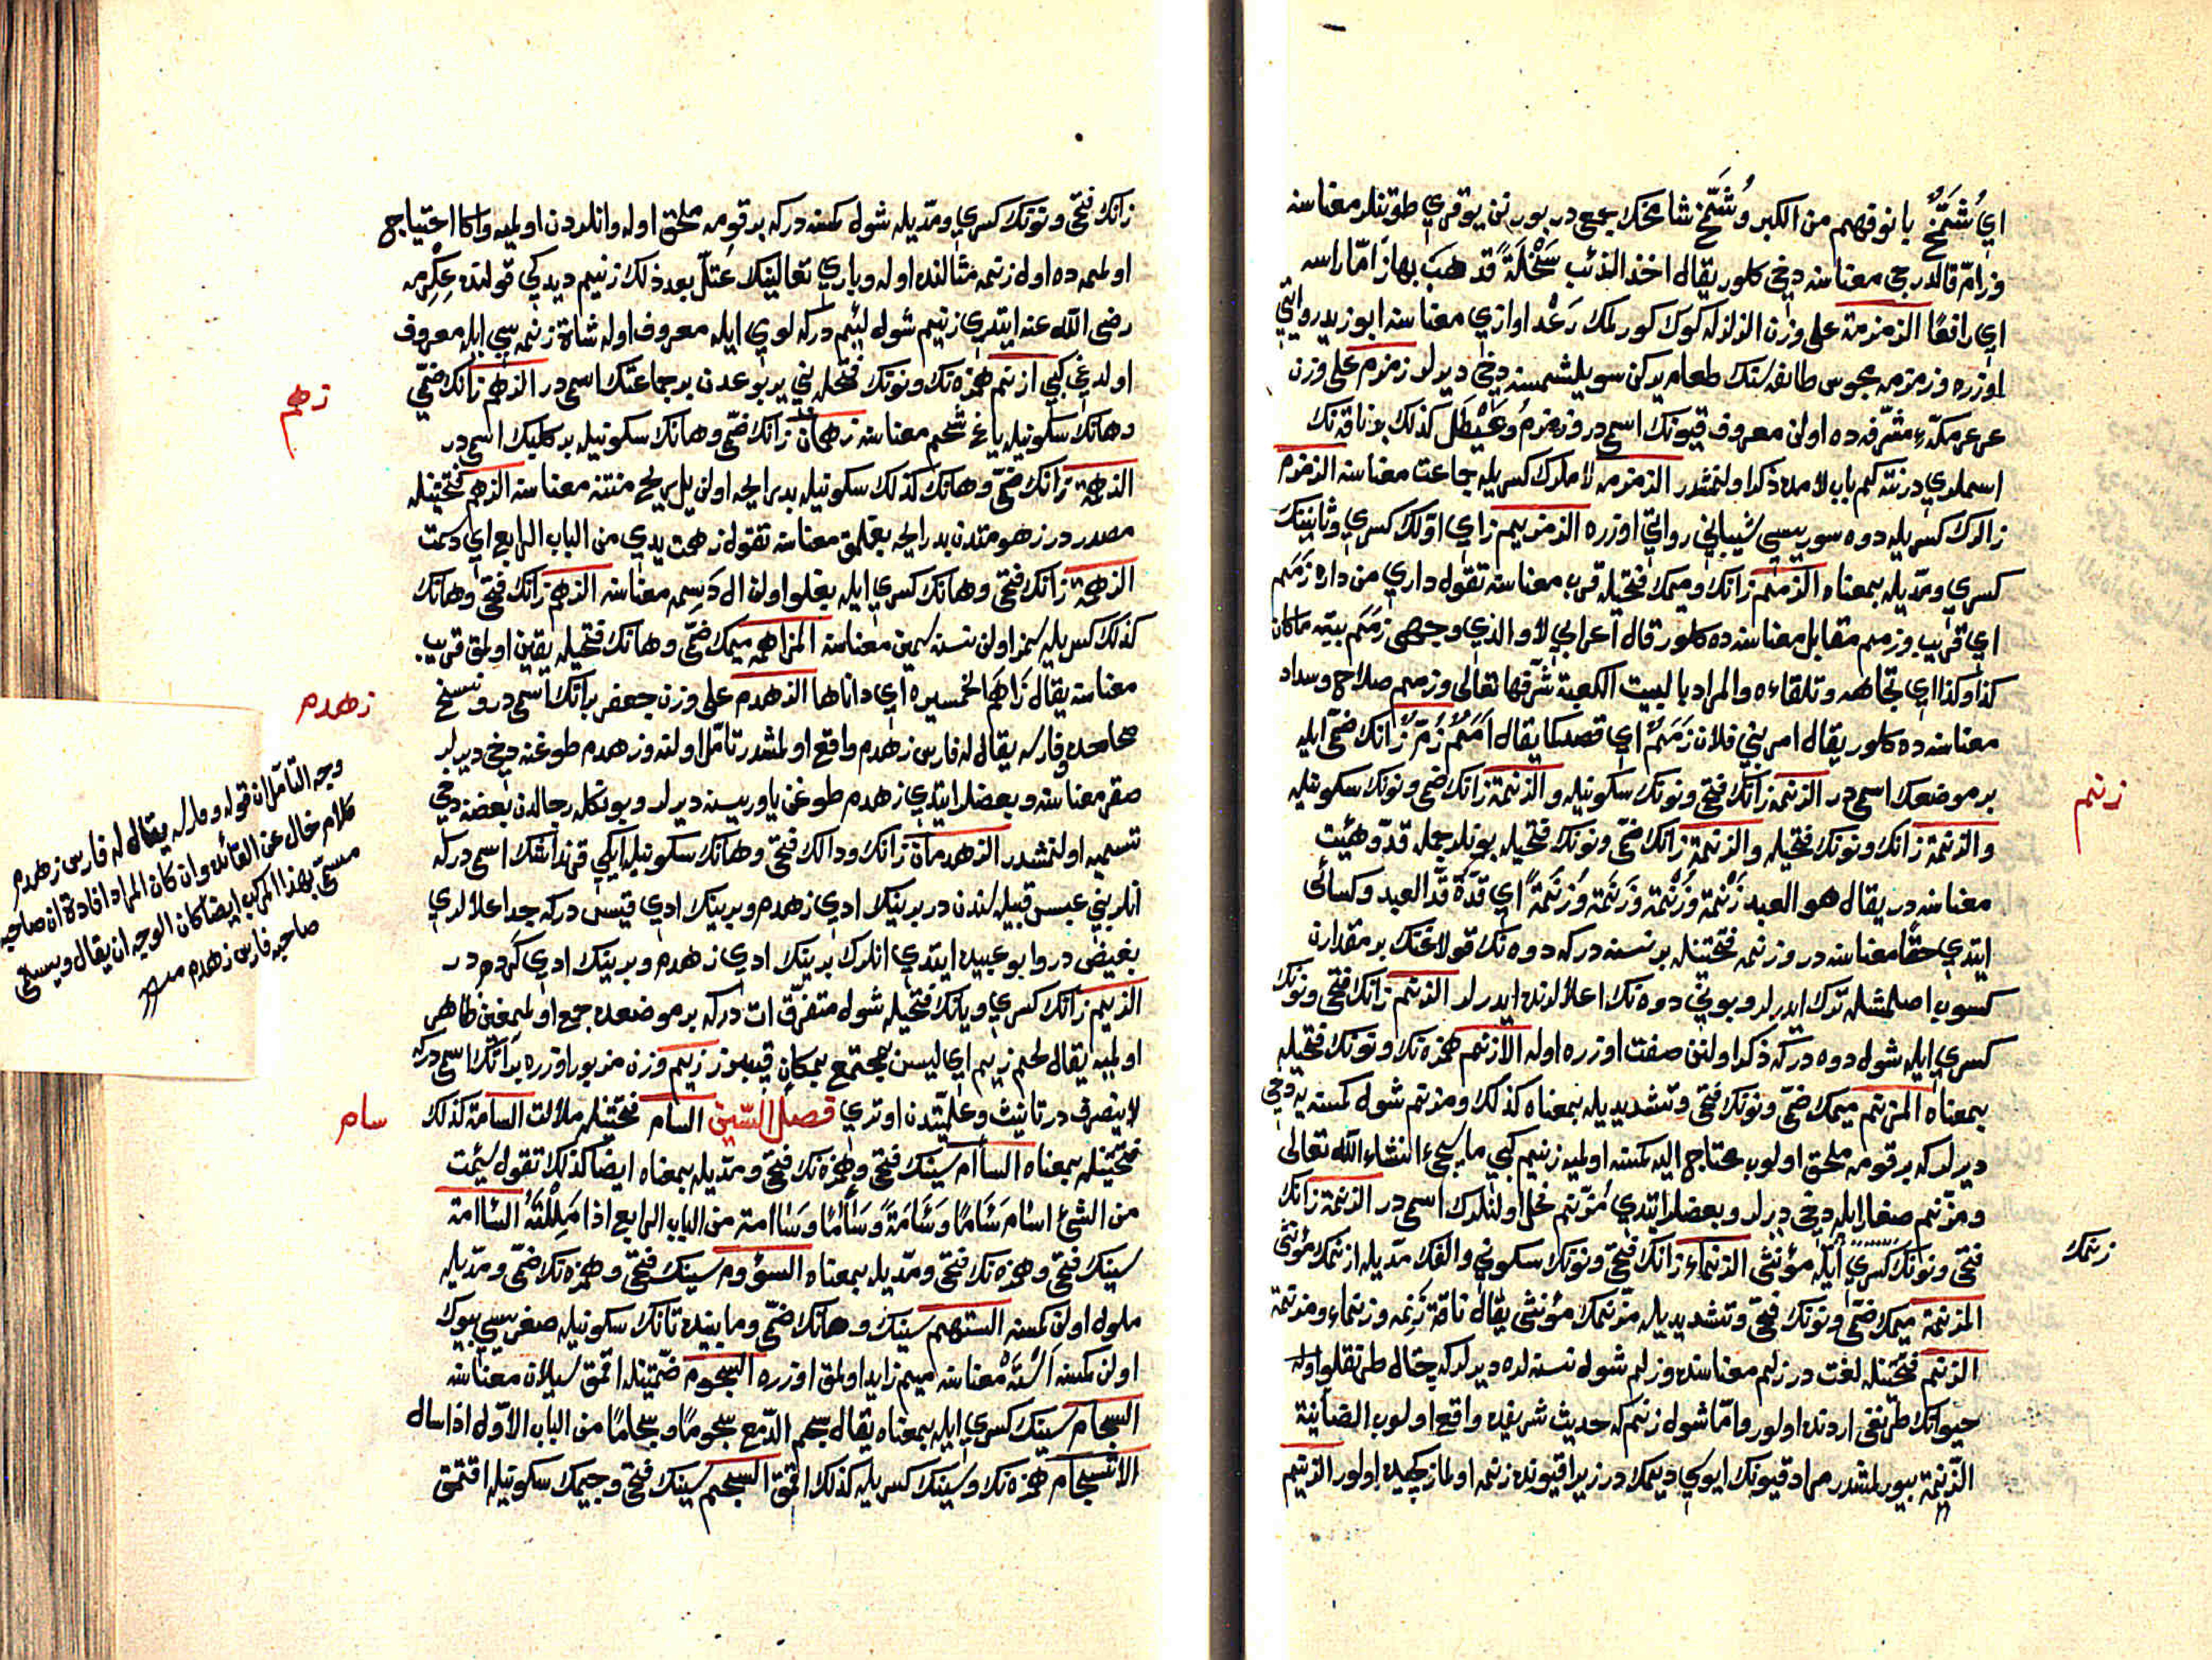 اي شُمَّخٌ بانوفهم من الكبر وشُمَّخ شامخك جمعيدر بورنن يوقري طوتنلر معناسنه
وزامّ قالدرجي معناسنه دخي كلور يقال اخذ الذئب سَخْلَةً فذهبَ بها زامّا راسه
اي رافعًا الزمزمة على وزن الزلزله كوك كورلمك رَعْد اوازي معناسنه ابو زيد روايتي
اوزره وزمزمه مجوس طائفه سنك طعام يركن سويلشمسنه دخي ديرلر زمزم على وزن
عرعر مكّهء مشرفه ده اولن معروف قيونك اسميدر وزمزم وعَيْطَل كذلك بر ناقه نك
اسملريدر نته كيم باب لامده ذكر اولنمشدر الزمزمه لاملرك كسريله جماعت معناسنه الزمزم
زالرك كسريله دوه سوريسي شيباني روايتي اوزره الزمزيم زاي اوّلك كسري وثانينك
كسري ومدّيله بمعناه الزمم زانك وميمك فتحيله قرب معناسنه تقول داري من داره زَمَم
اي قريب وزمم مقابل معناسنه ده كلور قال اعرابي لا والذي وجهي زمم بيته ماكان
كذا وكذا اي تجاهه وتلقاءه والمراد بالبيت الكعبة شرّفها تعالى وزمم صلاح وسداد
معناسنه ده كلور يقال امر بني فلان زَمَمٌ اي قصد كما يقال اَمَمٌ زُمٌّ زانك ضمّي ايله
بر موضعك اسميدر الزنمة زانك فتحي ونونك سكونيله والزنمة زانك ضمي ونونك سكونيله
والزنمة زانك ونونك فتحيله والزنمة زانك ضمّي ونونك فتحيله بونلر جمله قدّ وهيئت
معناسنه در يقال هو العبد زَنْمَة وزُنْمَة وزَنَمَة وزُنَمَةً اي قدّه قدّ العبد وكسائي
ايتدي حقّا معناسنه در وزنمه فتحتينله بر نسنه دركه دوه نك قولاغنك بر مقدارن
كسوب اصلمشله ترك ايدرلر وبوني دوه نك اعلالرنده ايدرلر الزنم زانك فتحي ونونك
كسري ايله شول دوه دركه ذكر اولنن صفت اوزره اوله الازنم همزه نك ونونك فتحيله
بمعناه المزنم ميمك ضمّي ونونك فتحي وتشديديله بمعناه كذلك ومزنم شول كمسنه يه دخي
ديرلر كه بر قومه ملحق اولوب محتاج اليه كمسنه اولميه زنيم كبي ما سيجيء ان شاء الله تعالى
ومزنم صغار ابله دخي ديرلر وبعضلر ايتدي مُزنم فحل اولنلرك اسميدر الزنمة زانك
فتحي ونونك كسري ايله مؤنثي الزنماء زانك فتحي ونونك سكوني والفك مدّيله ازنمك مؤنثي
المزنمة ميمك ضمّي ونونك فتحي وتشديديله مزنمك مؤنثي يقال ناقة زَنِمه وزنماء ومزنمة
الزنم فتحتينله لغت در زلم معناسنده وزلم شول نسنه لره ديرلر كه چتال طرنقلو اوله
حيوانك طرنغي اردنده اولور وامّا شول زنم كه حديث شريفده واقع اولوب الضائنة
الزنمة بيورلمشدر مراد قيونك ايوي ديمكدر زيرا قيونده زنمه اولماز كچيده اولور الزنيم
زنم
زنمك
زانك فتحي ونونك كسري ومدّيله شول كمسنه دركه بر قومه ملحق اوله وانلردن اولميه واكا احتياج
اولمه ده اول زنمه مثالنده اوله وباري تعالينك عُتلّ بعد ذلك زنيم ديدكي قولنده عِكْرِمه
رضي الله عنه ايتدي زنيم شول لئيم دركه لومي ايله معروف اوله شاة زنمه سي ايله معروف
اولدغي كبي ازنم همزه نك ونونك فتحيله بني يربوعدن بر جماعتك اسميدر الزهم زانك ضمّي
وهانك سكونيله ياغ شحم معناسنه زهمان زانك ضمّي وهانك سكونيله بر كلبك اسميدر
الزهمة زانك ضمّي وهانك كذلك سكونيله بد رايحه اولن يل ريح منتنه معناسنه الزهم فتحتينله
مصدر در زهومتدن بد رايحه يغلمق معناسنه تقول زهمت يدي من الباب الرابع اي دسمت
الزهمة زانك فتحي وهانك كسري ايله يغلو اولن ال دَسِمه معناسنه الزهم زانك فتحي وهانك
كذلك كسريله سمز اولن نسنه سمين معناسنه المزاهمه ميمك ضمّي وهانك فتحيله يقين اولمق قريب
معناسنه يقال زاهَم الخمسين اي داناها الزهدم على وزن جعفر بر اتك اسميدر ونسخ
صحاحده وفارسه يقال له فارس زهدم واقع اولمشدر تامّل اولنه وزهدم طوغنه دخي ديرلر
صقر معناسنه وبعضلر ايتدي زهدم طوغن ياوريسنه ديرلر وبونكله رجالدن بعضنه دخي
تسميه اولنمشدر الزهدمان زانك ودالك فتحي وهانك سكونيله ايكي قرنداشك اسميدركه
انلر بني عبس قبيله سندن در برينك ادي زهدم وبرينك ادي قيس دركه جد اعلالري
بغيض در وابو عبيده ايتدي انلرك برينك ادي زهدم وبرينك ادي كردم در
الزيم زانك كسري ويانك فتحيله شول متفرّق ات دركه بر موضعده جمع اولمغن ظاهر
اولميه يقال لحم زيم اي ليس بمجتمع بمكان وزيم وزن مزبور اوزره بر اتك اسميدركه
لا ينصرف در تانيث وعلميّتدن اوتري فصل السين السام فتحتينله ملالت السامة كذلك
فتحتينله بمعناه السأام سينك فتحي وهمزه نك فتحي ومدّيله بمعناه ايضا كذلك تقول سئمت
من الشيء اسأم سَأَمًا وسَأَمَةً وسَأْمًا وسَاامة من الباب الرابع اذا مَلِلْتَهُ السأامة
سينك فتحي وهمزه نك فتحي ومدّيله بمعناه السؤوم سينك فتحي وهمزه نك ضمّي ومدّيله
ملول اولن كمسنه الستهم سينك وهانك ضمّي وما بينده تانك سكونيله صغريسي بيوك
اولن كمسنه اَسْتَه معناسنه ميم زايد اولمق اوزره السجوم ضمّتينله اقمق سيلان معناسنه
السجام سينك كسري ايله بمعناه يقال سجم الدّمع سجومًا وسجامًا من الباب الاوّل اذا سال
الانسجام همزه نك وسينك كسريله كذلك اقمق السجم سينك فتحي وجيمك سكونيله اقتمق
زهم
زهدم
سام
وجه التأمّل ان قوله وفارسه يقال له فارس زهدم
كلام خال عن الفائده وان كان المراد افادة ان صاحبه
مسمّى بهذا المركب ايضا كان الوجه ان يقال ويسمّى
صاحبه فارس زهدم